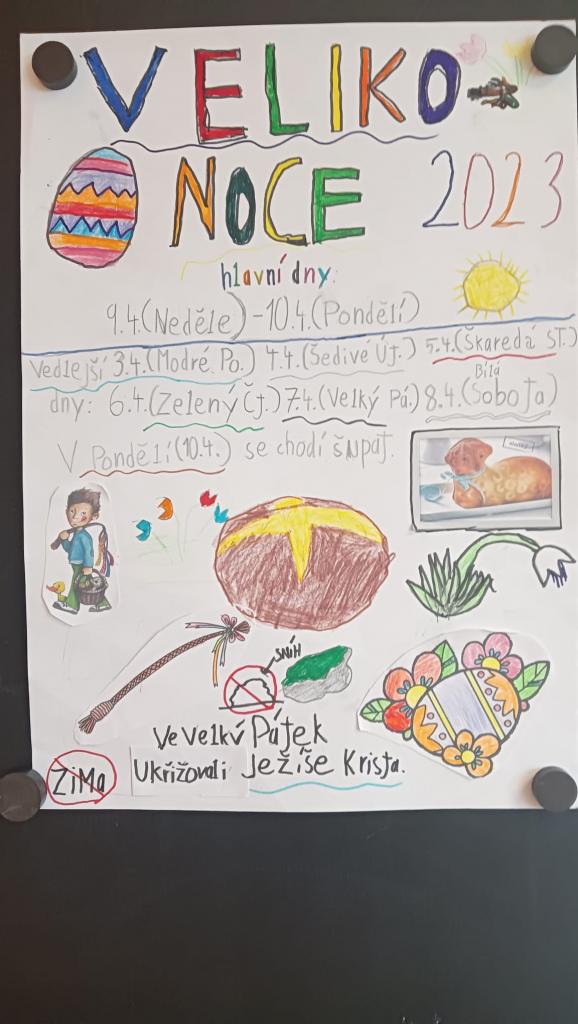 VELIKO
NOCE 2023
hlavní dny:
9.4.(Neděle)-10.4.(Pondělí)
Vedlejší 3.4.(Modré Po.) 4.4.(Šedivé Út.) 5.4.(Škaredá ST.)
dny: 6.4.(Zelený Čt.) 7.4.(Velký Pá.) 8.4.(Bílá Sobota)
V Pondělí(10.4.) se chodí šupat.
SNÍH
Ve Velký Pátek
ZiMa Ukřižovali Ježíše Krista.